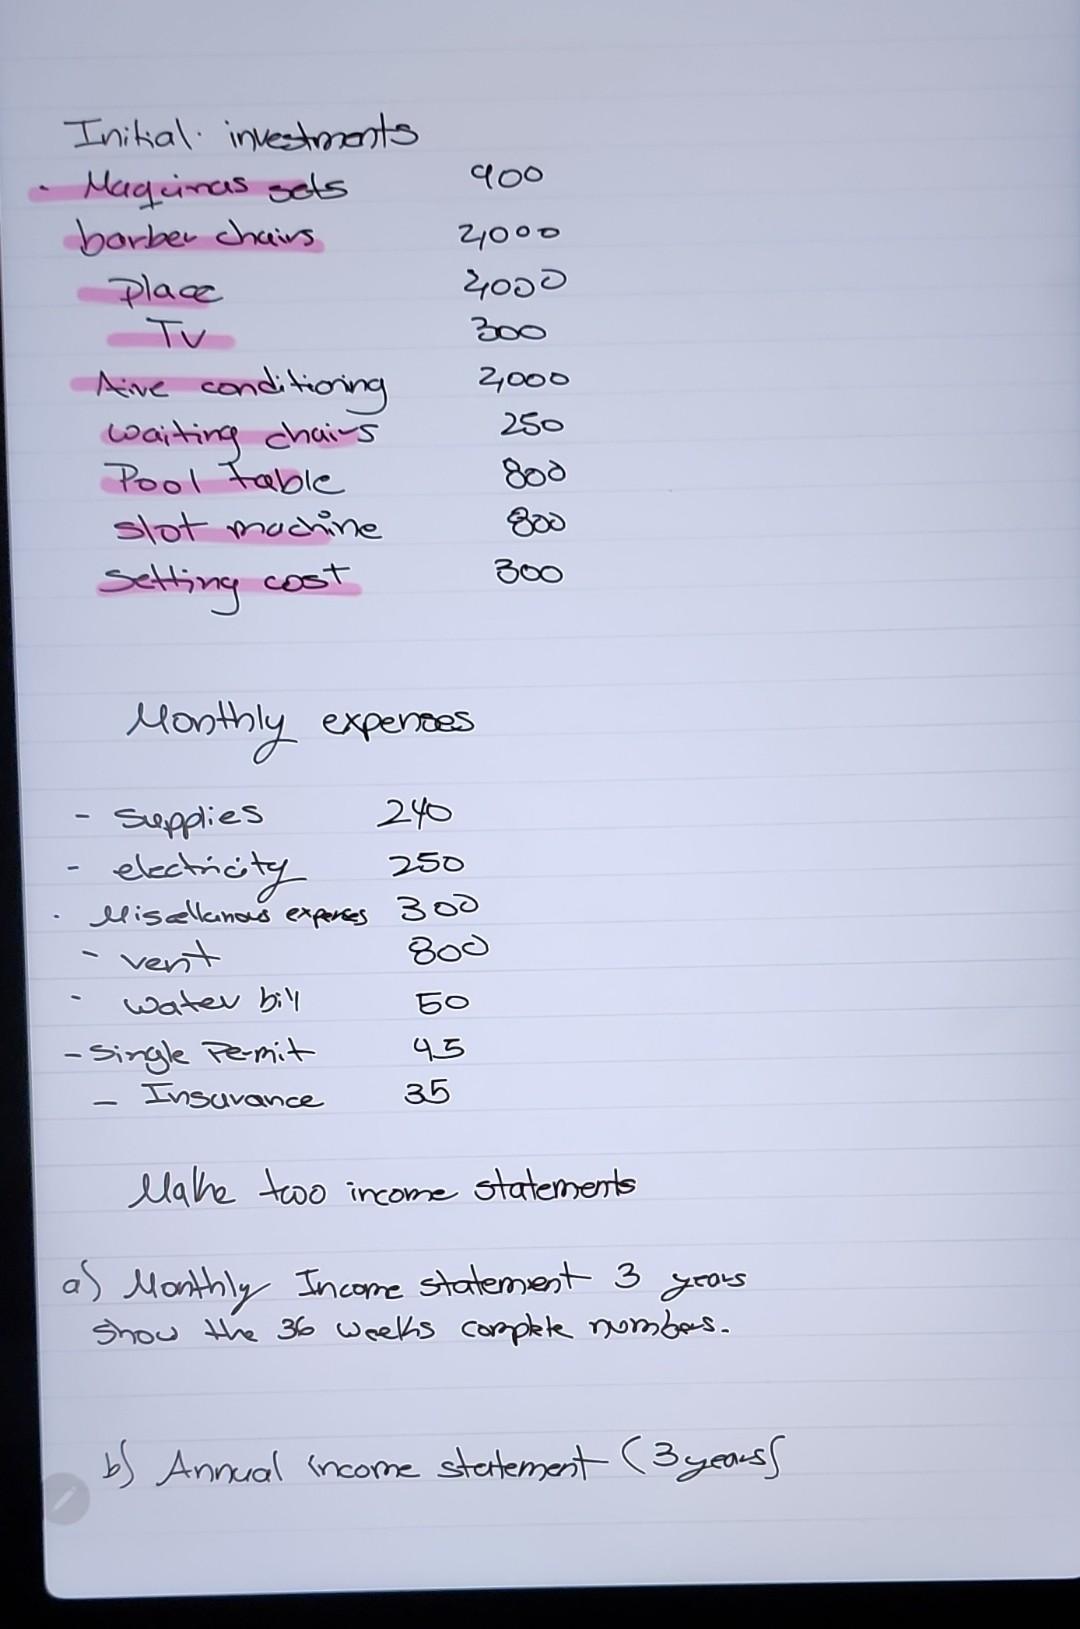 Initial investments
- Maquinas sets 900
barber chairs 2,000
Place 2,000
Tv 300
Aire conditioning 2,000
waiting chairs 250
Pool table 800
slot machine 800
Setting cost 300
Monthly expenses
- Supplies 240
- electricity 250
- Miscellanous expenses 300
- rent 800
- water bill 50
- Single Permit 45
- Insurance 35
Make two income statements
a) Monthly Income statement 3 years
show the 36 weeks complete numbers.
b) Annual income statement (3 years)